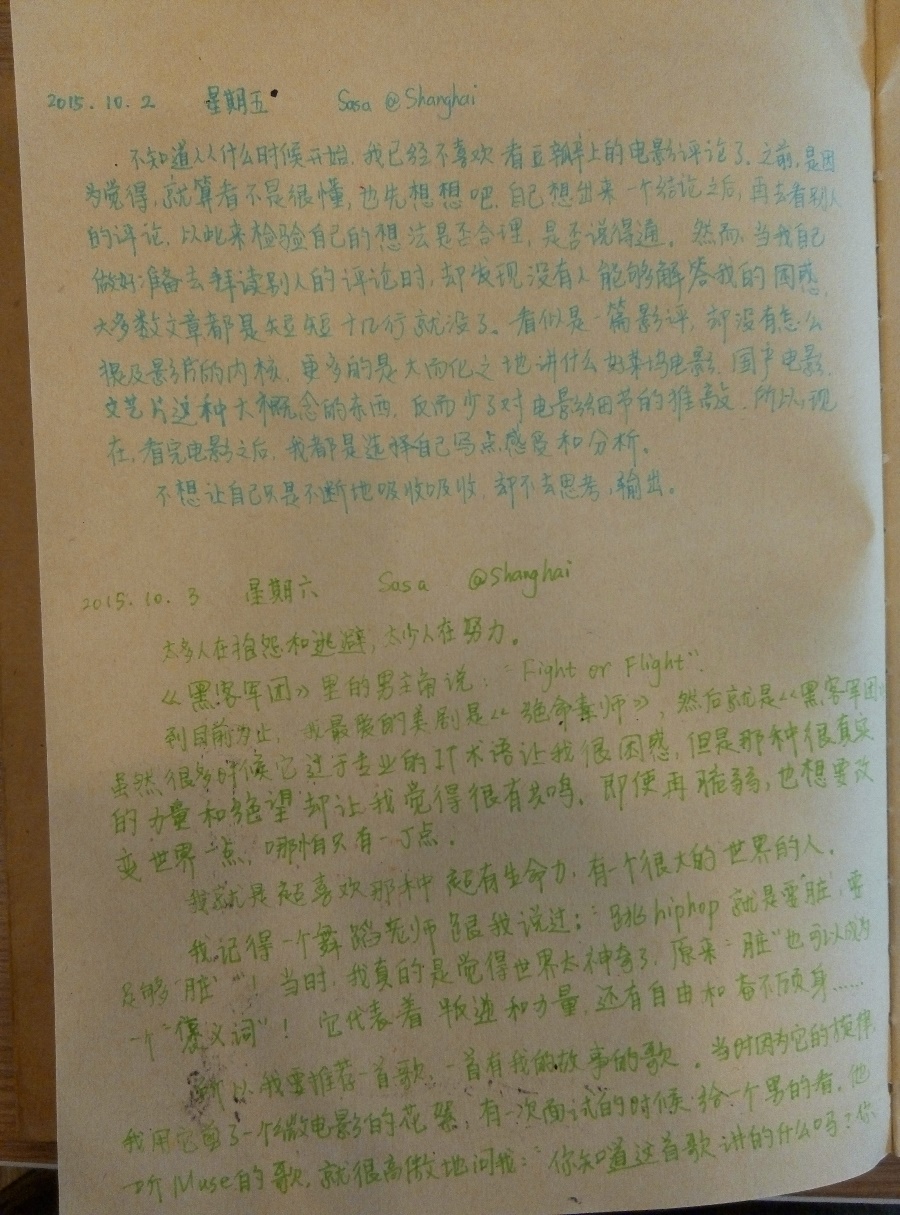 2015.10.2 星期五 Sasa @Shanghai
不知道从什么时候开始,我已经不喜欢看豆瓣上的电影评论了。之前,是因
为觉得,就算看不是很懂,也先想想吧,自己想出来一个结论之后,再去看别人
的评论,以此来检验自己的想法是否合理,是否说得通。然而,当我自己
做好准备去拜读别人的评论时,却发现没有人能够解答我的困惑,
大多数文章都是短短十几行就没了。看似是一篇影评,却没有怎么
提及影片的内核,更多的是大而化之地讲什么好莱坞电影,国产电影,
文艺片这种大概念的东西,反而少了对电影细节的推敲。所以,现
在,看完电影之后,我都是选择自己写点感受和分析。
不想让自己只是不断地吸收吸收,却不去思考,输出。
2015.10.3 星期六 Sasa @Shanghai
太多人在抱怨和逃避,太少人在努力。
《黑客军团》里的男主角说:“Fight or Flight”.
到目前为止,我最爱的美剧是《绝命毒师》,然后就是《黑客军团》
虽然很多时候它过于专业的IT术语让我很困惑,但是那种很真实
的力量和绝望却让我觉得很有共鸣。即使再脆弱,也想要改
变世界一点,哪怕只有一丁点。
我就是超喜欢那种超有生命力,有一个很大的世界的人。
我记得一个舞蹈老师跟我说过:“跳hiphop就是要脏,要
足够“脏””!当时,我真的是觉得世界太神奇了,原来“脏”也可以成为
一个“褒义词”!它代表着叛逆和力量,还有自由和奋不顾身……
所以我要推荐一首歌,一首有我的故事的歌。当时因为它的旋律,
我用它剪了一个微电影的花絮,有一次面试的时候给一个男的看,他
一听Muse的歌,就很高傲地问我:“你知道这首歌讲的什么吗?你